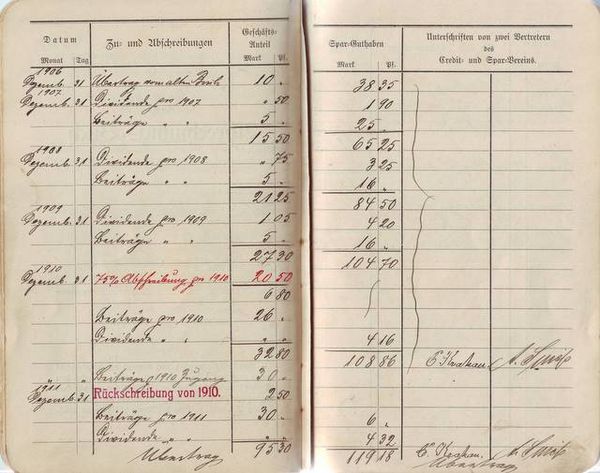 Datum
Monat Tag
Zu- und Abschreibungen
Geschäfts-
Anteil
Mark Pf.
1906
Dezemb. 31 Übertrag vom alten Buch 10 „
1907
Dezemb. 31 Dividende pro 1907 „ 50
Beiträge „ „ 5 „
15 50
1908
Dezemb. 31 Dividende pro 1908 „ 75
Beiträge „ „ 5 „
21 25
1909
Dezemb. 31 Dividende pro 1909 1 05
Beiträge „ „ 5 „
27 30
1910
Dezemb. 31 75% Abschreibung pro 1910 20 50
6 80
Beiträge pro 1910 26 „
Dividende „ „ „ „
32 80
„ „ Beiträge 1910 Zugang 30 „
1911
Dezemb. 31 Rückschreibung von 1910. 2 50
Beiträge pro 1911 30 „
Dividende „ „
Übertrag 95 30
Spar-Guthaben
Mark Pf.
Unterschriften von zwei Vertretern
des
Credit- und Spar-Vereins.
38 35
1 90
25 „
65 25
3 25
16 „
84 50
4 20
16 „
104 70
4 16
108 86
6 „
4 32
119 18
Übertrag